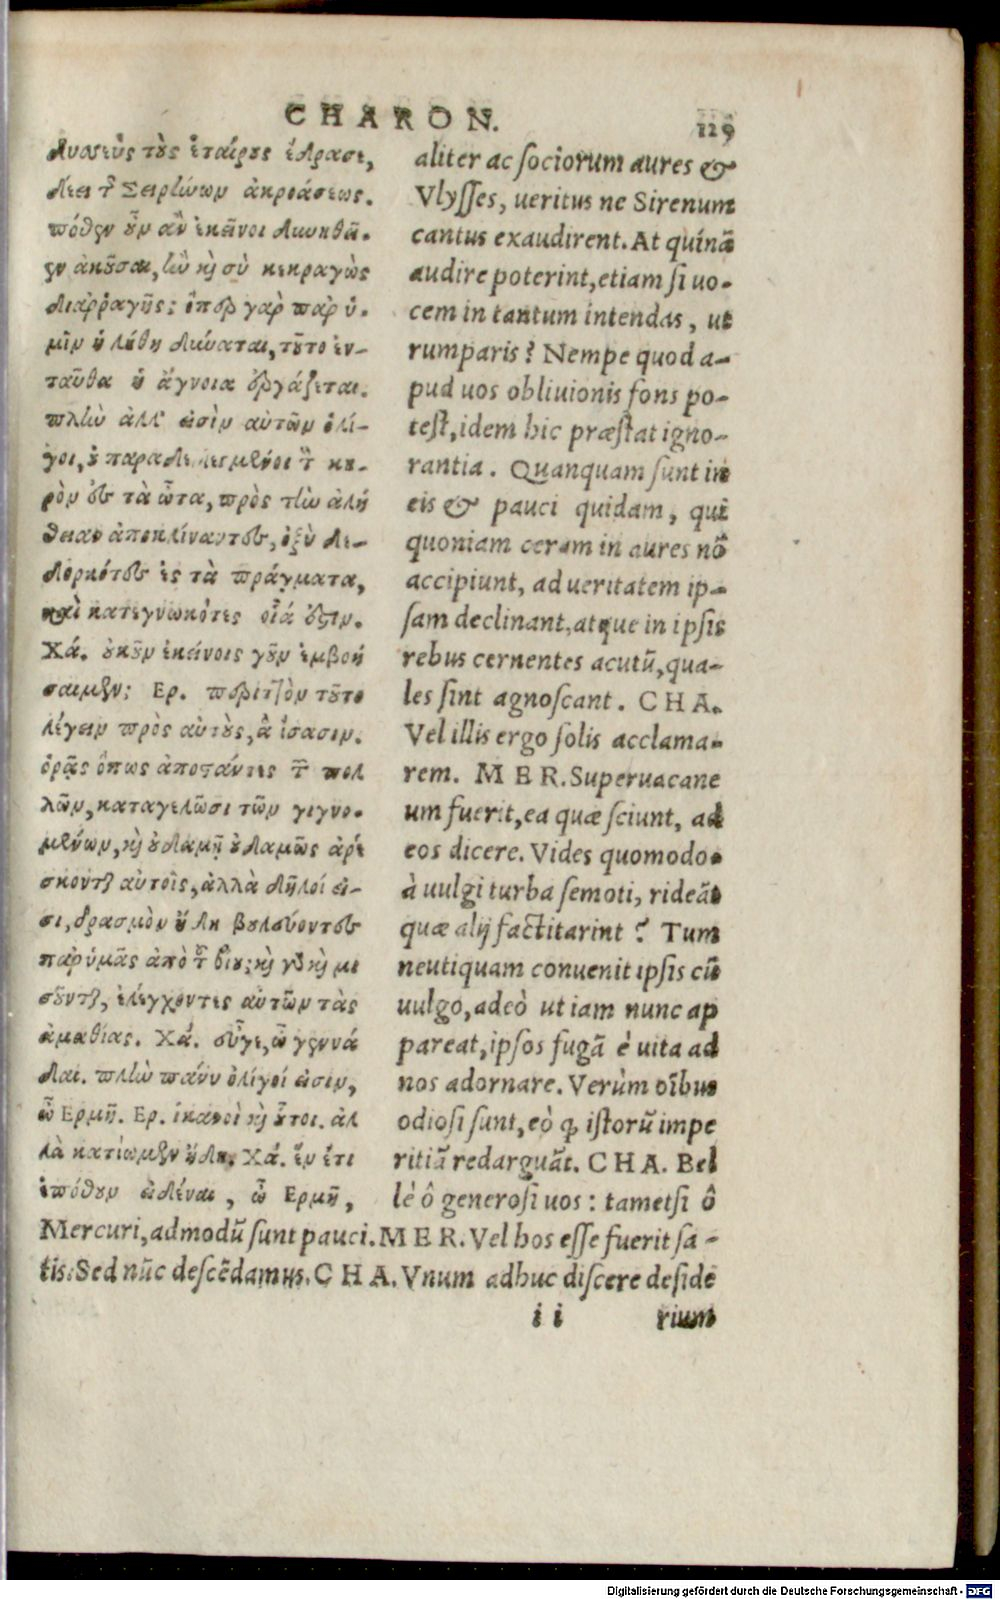 CHARON.
119
δυσσεὺς τοὺς ἑταίρους ἔδρασε,
δέει τ Σειρήνων ἀκροάσεως.
πόθεν οὖν ἂν ἐκεῖνοι δυνηθεῖ-
εν ἀκοῦσαι, ἢν καὶ σὺ κεκραγὼς
διαῤῥαγῇς; ὅπερ γὰρ παρ ὑ-
μῖν ἡ λήθη δύναται, τοῦτο ἐν-
ταῦθα ἡ ἄγνοια ἐργάζεται.
πλὴν ἀλλ' εἰσὶν αὐτῶν ὀλί-
γοι, οὐ παραδεδεγμένοι τ κη-
ρὸν ἐς τὰ ὦτα, πρὸς τὴν ἀλή
θειαν ἀποκλίναντες, ὀξὺ δε-
δορκότες ἐς τὰ πράγματα,
καὶ κατεγνωκότες οἷά ἐστιν.
Χά. οὐκοῦν ἐκείνοις γοῦν ἐμβοή
σαιμεν; Ερ. περιττὸν τοῦτο
λέγειν πρὸς αὐτοὺς, ἃ ἴσασιν.
ὁρᾷς ὅπως ἀποστάντες τ πολ
λῶν, καταγελῶσι τῶν γιγνο-
μένων, καὶ οὐδαμῇ οὐδαμῶς ἀρέ
σκονται αὐτοῖς, ἀλλὰ δῆλοί εἰ-
σι, δρασμὸν ἤδη βουλεύοντες
παρ' ὑμᾶς ἀπὸ τ βίου; καὶ γὰρ καὶ μι
σοῦνται, ἐλέγχοντες αὐτῶν τὰς
ἀμαθίας. Χά. εὖγε, ὦ γεννά
δαι. πλὴν πάνυ ὀλίγοί εἰσιν,
ὦ Ερμῆ. Ερ. ἱκανοὶ καὶ οὗτοι. ἀλ
λὰ κατίωμεν ἤδη. Χά. ἓν ἔτι
ἐπόθουν εἰδέναι, ὦ Ερμῆ,
aliter ac sociorum aures &
Vlysses, ueritus ne Sirenum
cantus exaudirent. At quínā
audire poterint, etiam si uo-
cem in tantum intendas, ut
rumparis? Nempe quod a-
pud uos obliuionis fons po-
test, idem hic præstat igno-
rantia. Quanquam sunt in
eis & pauci quidam, qui
quoniam ceram in aures nō
accipiunt, ad ueritatem ip-
sam declinant, atque in ipsis
rebus cernentes acutū, qua-
les sint agnoscant. CHA.
Vel illis ergo solis acclama-
rem. MER. Superuacane
um fuerit, ea quæ sciunt, ad
eos dicere. Vides quomodo
à uulgi turba semoti, rideāt
quæ alij factitarint? Tum
neutiquam conuenit ipsis cū
uulgo, adeò ut iam nunc ap
pareat, ipsos fugā è uita ad
nos adornare. Verùm oībus
odiosi sunt, eò ꝙ istorū impe
ritiā redarguāt. CHA. Bel
lè ô generosi uos: tametsi ô
Mercuri, admodū sunt pauci. MER. Vel hos esse fuerit sa-
tis: Sed nūc descēdamus. CHA. Vnum adhuc discere deside
i i rium
Digitalisierung gefördert durch die Deutsche Forschungsgemeinschaft - DFG